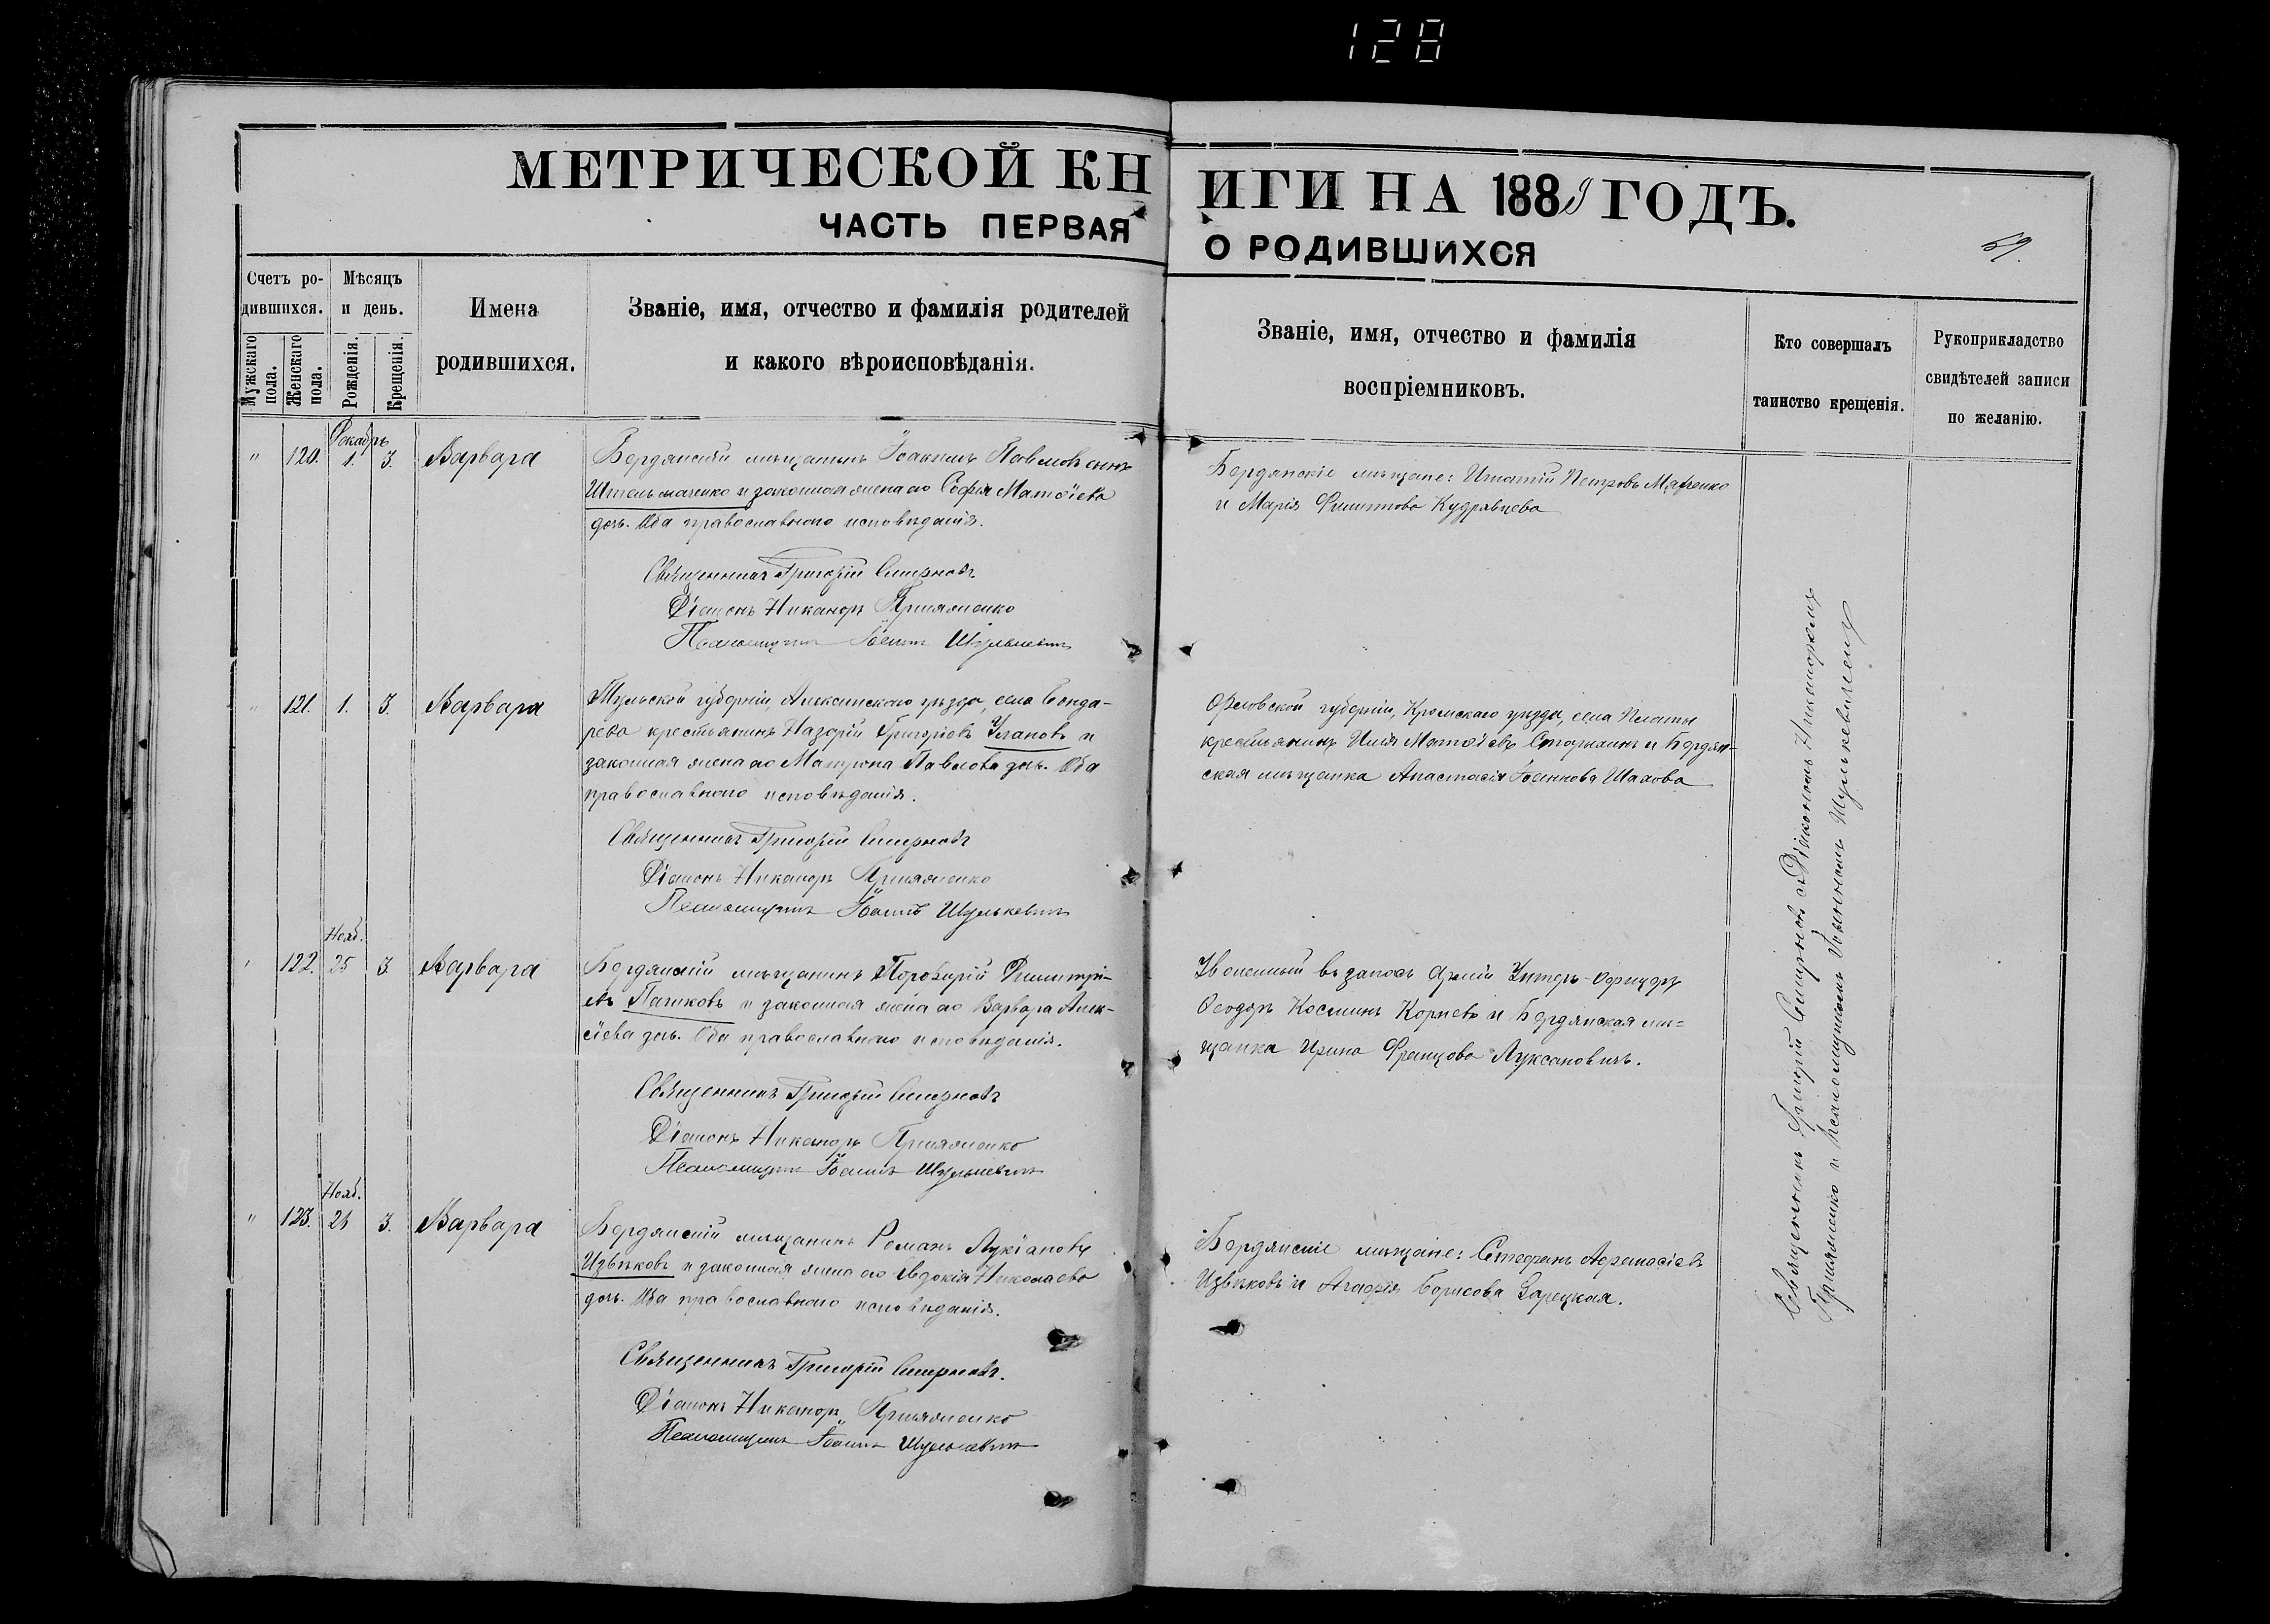 128
МЕТРИЧЕСКОЙ КНИГИ НА 1889 ГОДЪ.
ЧАСТЬ ПЕРВАЯ О РОДИВШИХСЯ
59.
Счетъ ро-
дившихся.
Мужскаго пола.
Женскаго пола.
Мѣсяцъ
и день.
Рожденія.
Крещенія.
Имена
родившихся.
Званіе, имя, отчество и фамилія родителей
и какого вѣроисповѣданія.
Званіе, имя, отчество и фамилія
воспріемниковъ.
Кто совершалъ
таинство крещенія.
Рукоприкладство
свидѣтелей записи
по желанію.
Декабрь
" 120. 1. 3. Варвара
Бердянскій мѣщанинъ Іоакимъ Павловъ
и законная жена его Софія Матѳіева
дочь. Оба православнаго исповѣданія.
Священникъ Григорій Смирновъ.
Діаконъ Никаноръ
Псаломщикъ Іоаннъ Шулькевичъ
Бердянскіе мѣщане: Игнатій Петровъ
и Марія Филиппова Кудрявцева
" 121. 1. 3. Варвара
Тульской губерніи, Алексинскаго уѣзда, села Бонда-
рева крестьянинъ Назарій Григорьевъ Улановъ и
законная жена его Матрона Павлова дочь. Оба
православнаго исповѣданія.
Священникъ Григорій Смирновъ
Діаконъ Никаноръ
Псаломщикъ Іоаннъ Шулькевичъ
Орловской губерніи, Кромскаго уѣзда, села
крестьянинъ Илія Матѳіевъ и Бердян-
ская мѣщанка Анастасія Іоаннова Шахова
Нояб.
" 122. 25 3. Варвара
Бердянскій мѣщанинъ Порфирій Димитрі-
евъ Пашковъ и законная жена его Варвара Алек-
сіева дочь. Оба православнаго исповѣданія.
Священникъ Григорій Смирновъ
Діаконъ Никаноръ
Псаломщикъ Іоаннъ Шулькевичъ
Уволенный въ запасъ Арміи Унтеръ-Офицеръ
Ѳеодоръ Косминъ Корневъ и Бердянская мѣ=
щанка Ирина Францова Луксановичъ.
Нояб.
" 123. 3. Варвара
Бердянскій мѣщанинъ Романъ Лукіановъ
Извѣковъ и законная жена его Евдокія Николаева
дочь. Оба православнаго исповѣданія.
Священникъ Григорій Смирновъ.
Діаконъ Никаноръ
Псаломщикъ Іоаннъ Шулькевичъ
Бердянскіе мѣщане: Стефанъ Аѳанасіевъ
Извѣковъ и Агафія Борисова Зарецкая.
Священникъ Григорій Смирновъ съ Діакономъ Никаноромъ
и Псаломщикомъ Іоанномъ Шулькевичемъ